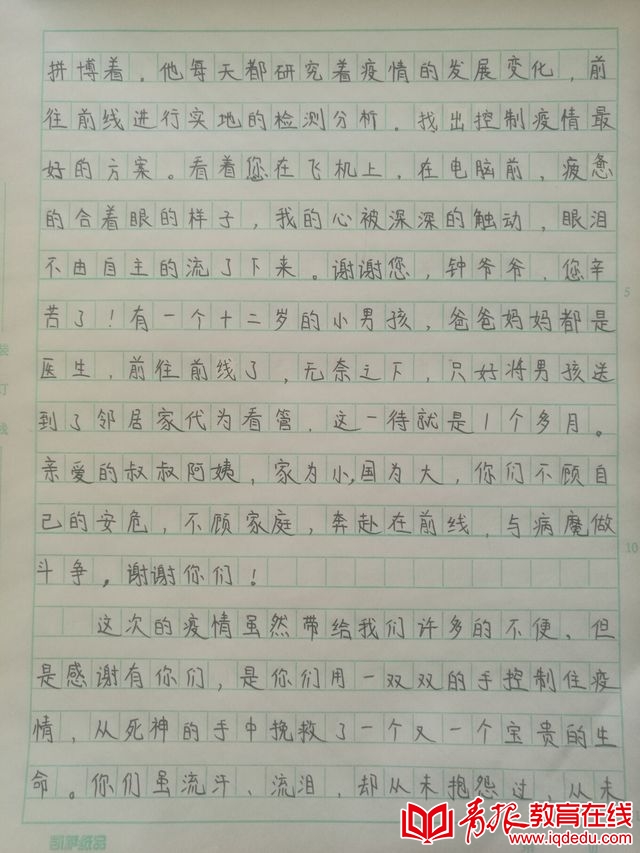 拼博着。他每天都研究着疫情的发展变化，前
往前线进行实地的检测分析。找出控制疫情最
好的方案。看着您在飞机上，在电脑前，疲惫
的合着眼的样子，我的心被深深的触动，眼泪
不由自主的流了下来。谢谢您，钟爷爷，您辛
苦了！有一个十二岁的小男孩，爸爸妈妈都是
医生，前往前线了，无奈之下，只好将男孩送
到了邻居家代为看管，这一待就是1个多月。
亲爱的叔叔阿姨，家为小，国为大，你们不顾自
己的安危，不顾家庭，奔赴在前线，与病魔做
斗争。谢谢你们！
这次的疫情虽然带给我们许多的不便，但
是感谢有你们，是你们用一双双的手控制住疫
情，从死神的手中挽救了一个又一个宝贵的生
命。你们虽流汗、流泪，却从未抱怨过，从未
5
10
装
订
线
青报教育在线
www.iqdedu.com